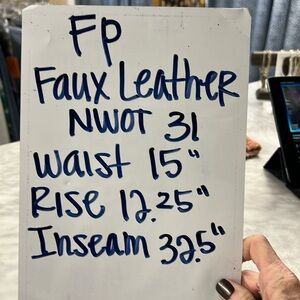 Fp
Faux Leather
NWOT 31
Waist 15"
Rise 12.25"
Inseam 32.5"